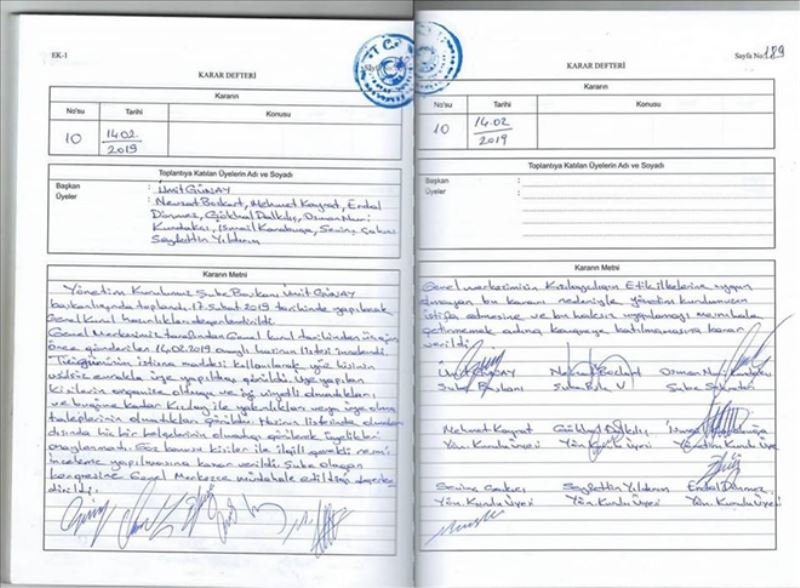 EK-1
KARAR DEFTERİ
Kararın
No'su
Tarihi
Konusu
10
14.02.2019
Toplantıya Katılan Üyelerin Adı ve Soyadı
Başkan : Ümit GÜNAY
Üyeler : Nevzat Bozkart, Mehmet Kayrat, Erdal
Dönmez, Gökhal Dalkılıç, Osman Nuri
Kundakcı, İsmail Karabuğa, Sevinç
Seyfettin Yıldırım
Kararın Metni
Yönetim Kurulumuz Şube Başkanı Ümit GÜNAY
başkanlığında toplandı. 17 Şubat 2019 tarihinde yapılacak
Genel Kurul hazırlıkları değerlendirildi.
Genel Merkezimiz tarafından Genel kurul tarihinden üç gün
önce gönderilen 14.02.2019 onaylı hazirun listesi incelendi.
Tüzüğümüzün istisna maddesi kullanılarak yüz kişinin
usulsüz evrakla üye yapıldığı görüldü. Üye yapılan
kişilerin organize olduğu ve iyi niyetli olmadıkları
ve bugüne kadar Kızılay ile yakınlıkları veya üye olma
taleplerinin olmadıkları görüldü. Hazirun listesinde olmaları
dışında hiç bir belgelerinin olmadığı görülerek üyelikleri
onaylanmadı. Söz konusu kişiler ile ilgili gerekli resmi
inceleme yapılmasına karar verildi. Şube olağan
kongresine Genel Merkezce müdahale edildiği değerlen
dirildi.
Sayfa No: 189
KARAR DEFTERİ
Kararın
No'su
Tarihi
Konusu
10
14.02
2019
Toplantıya Katılan Üyelerin Adı ve Soyadı
Başkan :
Üyeler :
Kararın Metni
Genel merkezimizin Kızılaycılığın Etik ilkelerine uygun
olmayan bu kararı nedeniyle yönetim kurulumuzun
istifa etmesine ve bu haksız uygulamayı
getirmemek adına kongreye katılmamasına karar
verildi.
Ümit GÜNAY Nevzat Bozkart Osman Nuri Kundakcı
Şube Başkanı Şube Bşk. V Şube Sekreteri
Mehmet Kayrat Gökhal Dalkılıç
Yön. Kurulu Üyesi Yön. Kurulu Üyesi Yönetim Kurulu Üye
Sevinç Seyfettin Yıldırım Erdal Dönmez
Yön. Kurulu Üyesi Yön. Kurulu Üyesi Yön. Kurulu Üyesi